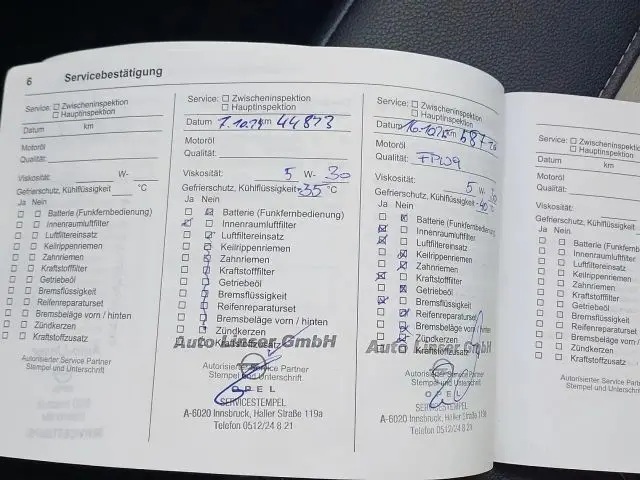 6 Servicebestätigung
Service: Zwischeninspektion
Hauptinspektion
Datum km
Motoröl
Qualität:
Viskosität: W-
Gefrierschutz, Kühlflüssigkeit: °C
Ja Nein
Batterie (Funkfernbedienung)
Innenraumluftfilter
Luftfiltereinsatz
Keilrippenriemen
Zahnriemen
Kraftstofffilter
Getriebeöl
Bremsflüssigkeit
Reifenreparaturset
Bremsbeläge vorn / hinten
Zündkerzen
Kraftstoffzusatz
Autorisierter Service Partner
Stempel und Unterschrift
Service: Zwischeninspektion
Hauptinspektion
Datum km 44873
Motoröl
Qualität:
Viskosität: 5 W- 30
Gefrierschutz, Kühlflüssigkeit: -35 °C
Ja Nein
Batterie (Funkfernbedienung)
Innenraumluftfilter
Luftfiltereinsatz
Keilrippenriemen
Zahnriemen
Kraftstofffilter
Getriebeöl
Bremsflüssigkeit
Reifenreparaturset
Bremsbeläge vorn / hinten
Zündkerzen
Kraftstoffzusatz
GmbH
Autorisierter Service Partner
Stempel und Unterschrift
OPEL
SERVICESTEMPEL
A-6020 Innsbruck, Haller Straße 119a
Telefon 0512/24 8 21
Service: Zwischeninspektion
Hauptinspektion
Datum km
Motoröl
Qualität:
Viskosität: 5 W- 30
Gefrierschutz, Kühlflüssigkeit -40 °C
Ja Nein
Batterie (Funkfernbedienung)
Innenraumluftfilter
Luftfiltereinsatz
Keilrippenriemen
Zahnriemen
Kraftstofffilter
Getriebeöl
Bremsflüssigkeit
Reifenreparaturset
Bremsbeläge vorn / hinten
Zündkerzen
Kraftstoffzusatz
GmbH
Autorisierter Service Partner
Stempel und Unterschrift
OPEL
SERVICESTEMPEL
A-6020 Innsbruck, Haller Straße 119a
Telefon 0512/24 8 21
Service: Zwischeninspektion
Hauptinspektion
Datum km
Motoröl
Qualität:
Viskosität:
Gefrierschutz, Kühlflüssig
Ja Nein
Batterie (Funkfernb
Innenraumluftfilter
Luftfiltereinsatz
Keilrippenriemen
Zahnriemen
Kraftstofffilter
Getriebeöl
Bremsflüssigkeit
Reifenreparaturset
Bremsbeläge vorn
Zündkerzen
Kraftstoffzusatz
Autorisierter Service Partn
Stempel und Untersch